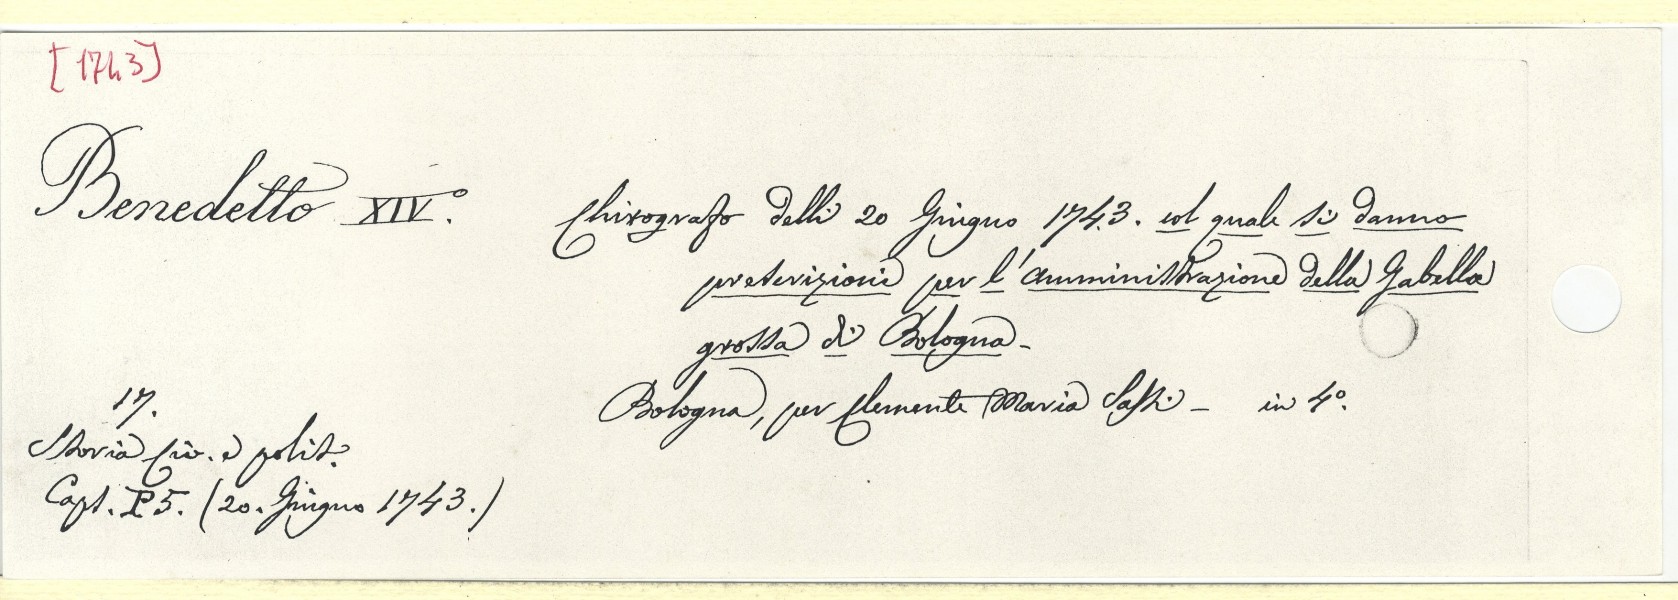 [1743]
Benedetto XIV°.
Chirografo delli 20 Giugno 1743. col quale si danno
prescrizioni per l'amministrazione della Gabella
grossa di Bologna -
Bologna, per Clemente Maria Sassi - in 4°.
17.
Storia civ. e polit.
Caps. P 5. (20. Giugno 1743.)